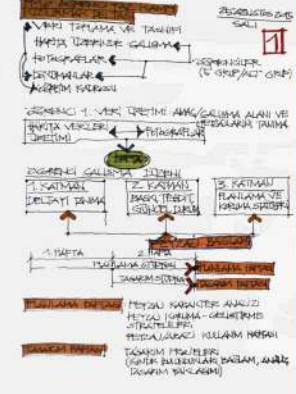 25 AĞUSTOS 2015
SALI
1
VERİ TOPLAMA VE TASNİFİ
HARİTA ÜZERİNDE ÇALIŞMA
FOTOGRAFLAR
DÖKÜMANLAR
ÖĞRETİM KADROSU
ÖĞRENCİLER
(5 GRUP/ALT GRUP)
ÖĞRENCİ 1. VERİ ÜRETİMİ AMAÇ/ÇALIŞMA ALANI VE
TANIMA
HARİTA VERİLERİ
ÜRETİMİ
FOTOGRAFLAR
HARİTA
ÖĞRENCİ ÇALIŞMA DÜZENİ
1. KATMAN
DELTAYI TANIMA
2. KATMAN
BASKI, TEHDİT,
GÜNCEL DURUM
3. KATMAN
PLANLAMA VE
KORUMA
PEYZAJ BAĞLAM
1. HAFTA
2. HAFTA
PLANLAMA STÜDYOSU
PLANLAMA HAFTASI
TASARIM STÜDYOSU
TASARIM HAFTASI
PLANLAMA HAFTASI
PEYZAJ KARAKTER ANALİZİ
PEYZAJ KORUMA-GELİŞTİRME
STRATEJİLERİ
PEYZAJ/ARAZİ KULLANIM HARİTASI
TASARIM HAFTASI
TASARIM PROJELERİ
BAĞLAM, ANALİZ,
TASARIM YAKLAŞIMI)